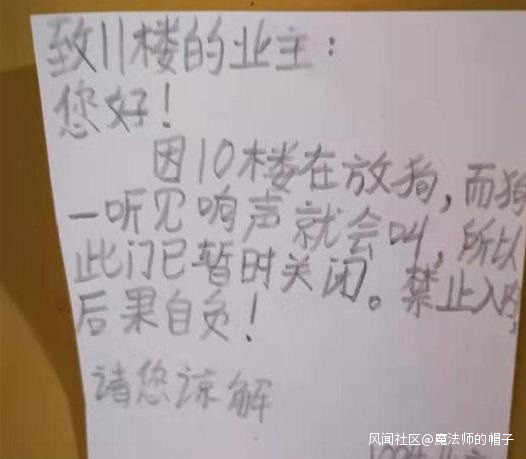 致11楼的业主：
您好！
因10楼在放狗，而狗
一听见响声就会叫，所以
此门已暂时关闭。禁止入内，
后果自负！
请您谅解
风闻社区@魔法师的帽子